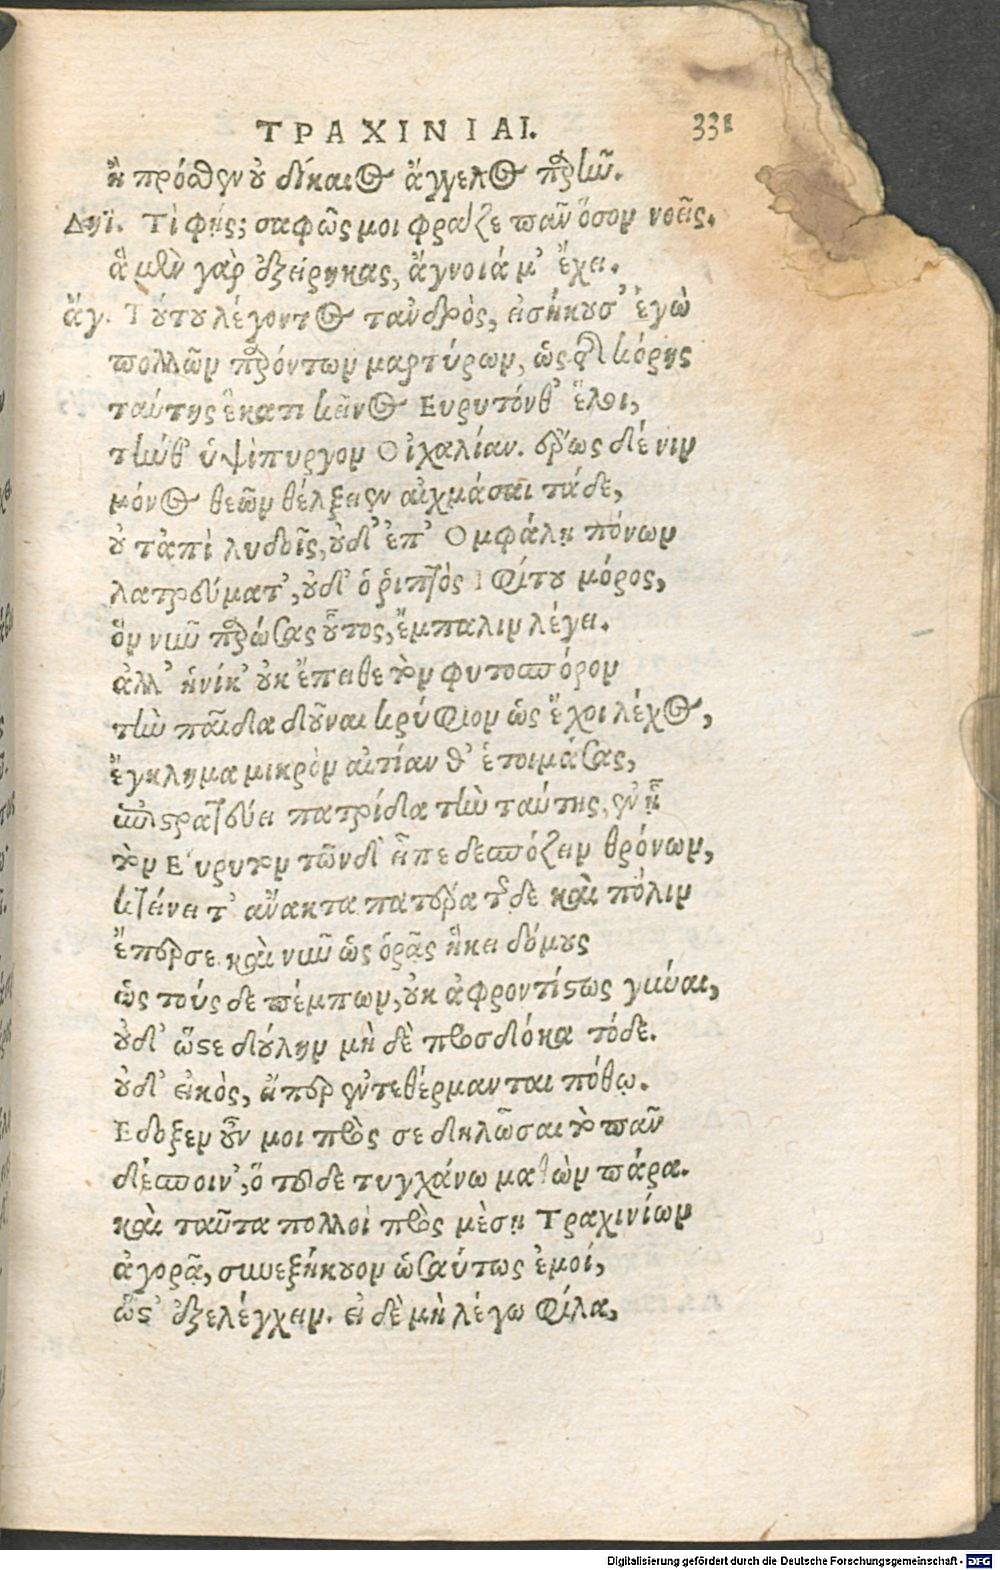 ΤΡΑΧΙΝΙΑΙ. 331
ἢ πρόσθεν οὐ δίκαιος ἄγγελος παρῆν.
Δηϊ. Τὶ φῄς; σαφῶς μοι φράζε πᾶν ὅσον νοεῖς.
ἃ μὲν γὰρ ἐξείρηκας, ἄγνοιά μ' ἔχει.
ἄγ. Τούτου λέγοντος τἀνδρὸς, εἰσήκουσ' ἐγὼ
πολλῶν παρόντων μαρτύρων, ὡς τῆς κόρης
ταύτης ἕκατι κεῖνος Ευρυτόνθ' ἕλοι,
τήνθ' ὑψίπυργον Οἰχαλίαν. ἔρως δέ νιν
μόνος θεῶν θέλξειεν αἰχμάσαι τάδε,
οὐ τἀπὶ λυδοῖς, οὐδ' ἐπ' Ομφάλῃ πόνων
λατρεύματ', οὐδ' ὁ ῥιπτὸς Ιφίτου μόρος,
ὃν νῦν παρώσας οὗτος, ἔμπαλιν λέγει.
ἀλλ' ἡνίκ' οὐκ ἔπειθε τὸν φυτοσπόρον
τὴν παῖδα δοῦναι κρύφιον ὡς ἔχοι λέχος,
ἔγκλημα μικρὸν αἰτίαν θ' ἑτοιμάσας,
ἐπιστρατεύει πατρίδα τὴν ταύτης, ἐν ᾗ
τὸν Εὐρυτον τῶνδ' εἶπε δεσπόζειν θρόνων,
κτείνει τ' ἄνακτα πατέρα τῆσδε καὶ πόλιν
ἔπερσε. καὶ νῦν ὡς ὁρᾷς ἥκει δόμους
ὡς τούς δε πέμπων, οὐκ ἀφροντίστως γύναι,
οὐδ' ὥστε δούλην μὴ δὲ προσδόκα τόδε.
οὐδ' εἰκὸς, εἴπερ ἐντεθέρμανται πόθῳ.
Εδοξεν οὖν μοι πρὸς σε δηλῶσαι τὸ πᾶν
δέσποιν', ὅ τοῦδε τυγχάνω μαθὼν πάρα.
καὶ ταῦτα πολλοὶ πρὸς μὲσῃ Τραχινίων
ἀγορᾷ, συνεξήκουον ὡσαύτως ἐμοί,
ὥστ' ἐξελέγχειν. εἰ δὲ μὴ λέγω φίλα,
Digitalisierung gefördert durch die Deutsche Forschungsgemeinschaft - DFG